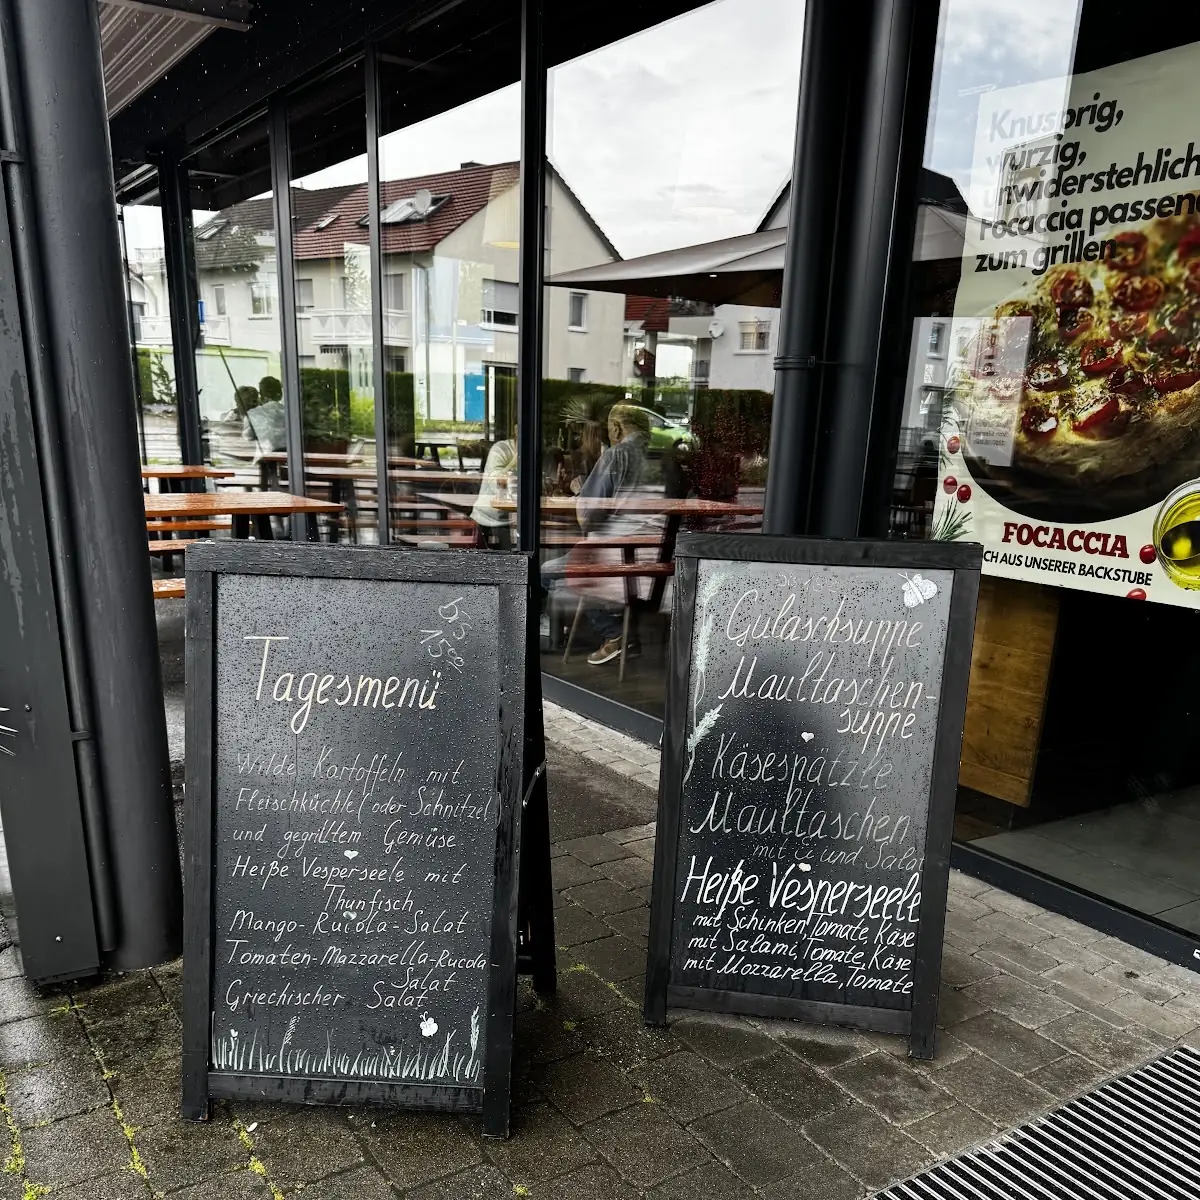 Tagesmenü
Wilde Kartoffeln mit
Fleischküchle (oder Schnitzel)
und gegrilltem Gemüse
Heiße Vesperseele mit
Thunfisch
Mango-Rucola-Salat
Tomaten-Mazzarella-Rucola-
Salat
Griechischer Salat
Gulaschsuppe
Maultaschen-
suppe
Käsespätzle
Maultaschen
mit Ei und Salat
Heiße Vesperseele
mit Schinken, Tomate, Käse
mit Salami, Tomate, Käse
mit Mozzarella, Tomate
Knusprig,
würzig,
unwiderstehlich
Focaccia passend
zum grillen
FOCACCIA
CH AUS UNSERER BACKSTUBE